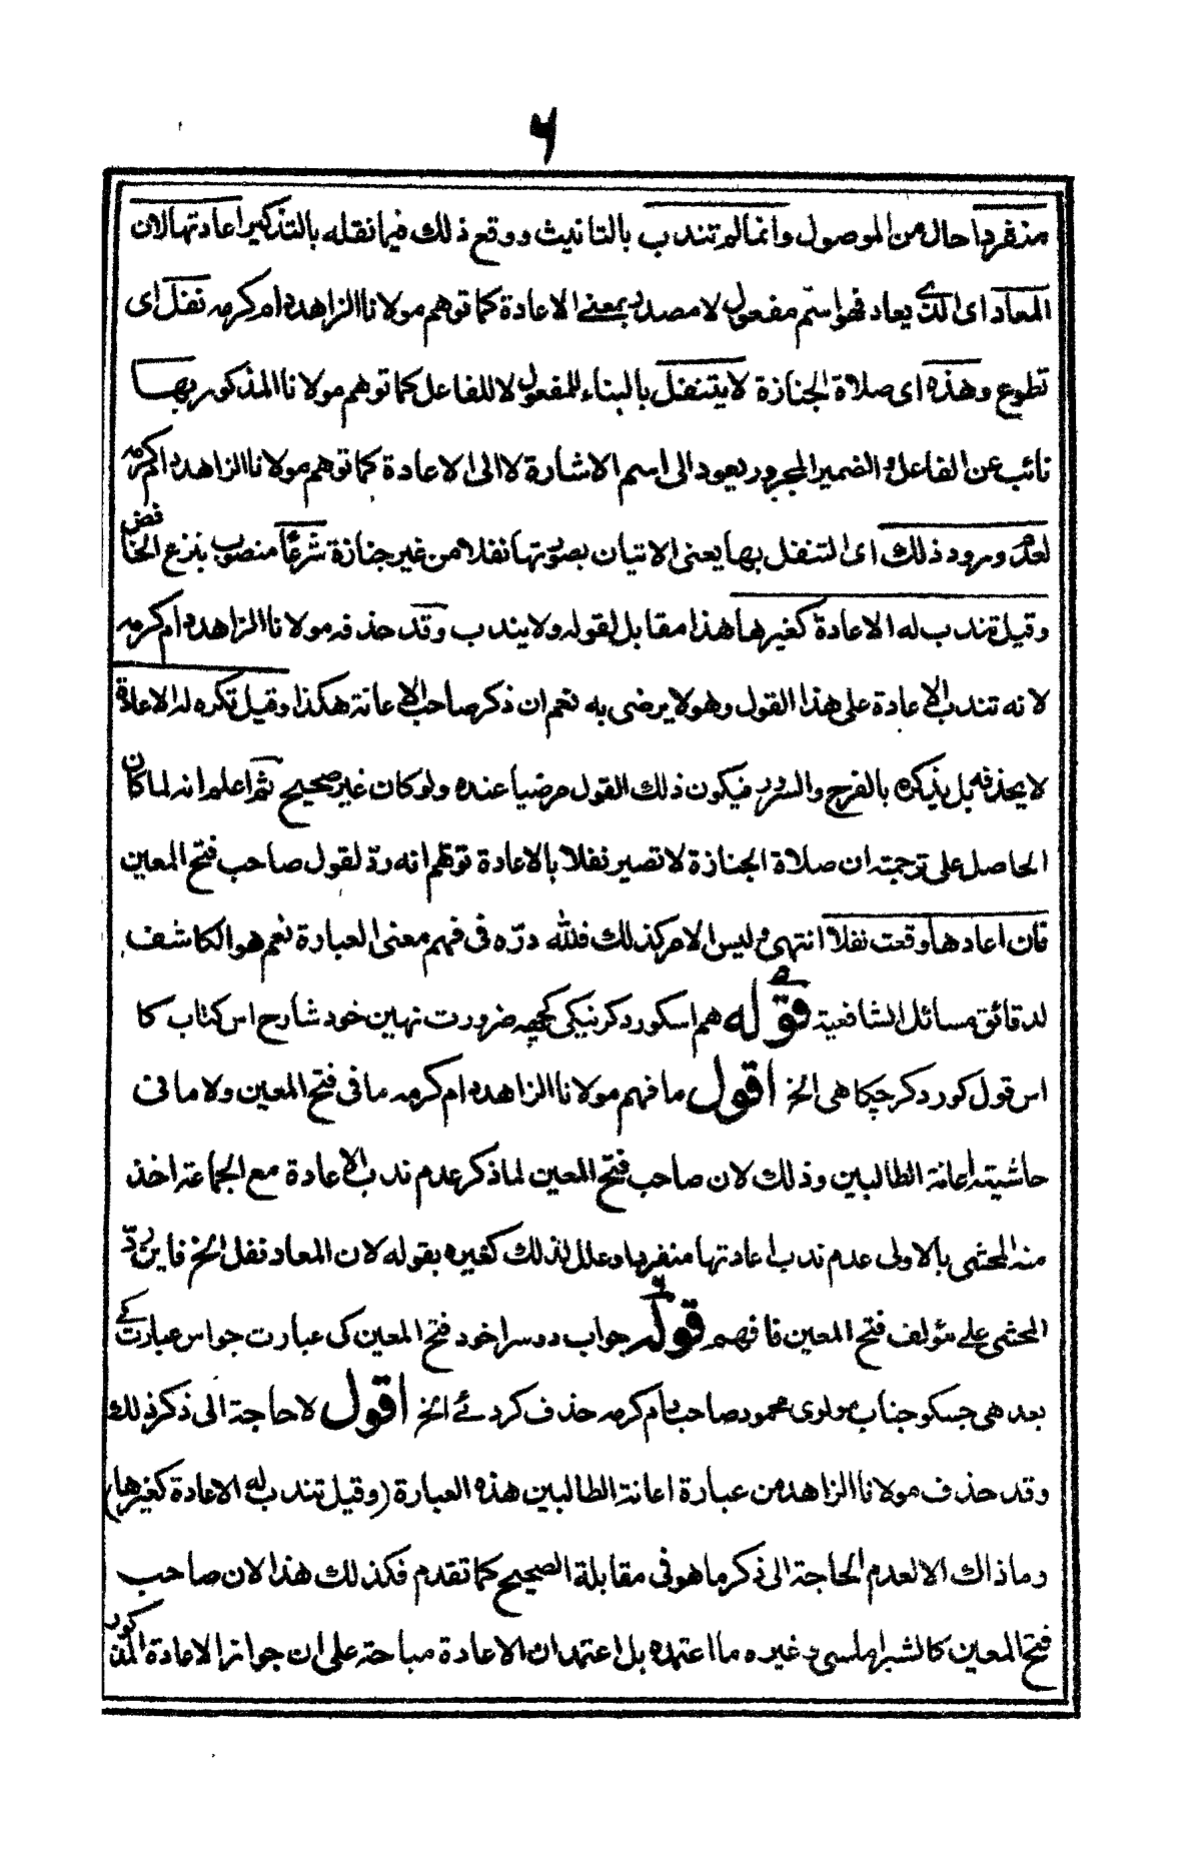 ۶
منفردا حال من الموصول وانما لم تندب بالتانيث ووقع ذلك فيما نقله بالتذكير اعادتها لان
المعاد اى الذى يعاد فهو اسم مفعول لا مصدر بمعنى الاعادة كما توهم مولانا الزاهد دام كرمه نفل اى
تطوع وهذه اى صلاة الجنازة لا يتنفل بالبناء للمفعول لا للفاعل كما توهم مولانا المذكور بها
نائب عن الفاعل والضمير المجرور يعود الى اسم الاشارة لا الى الاعادة كما توهم مولانا الزاهد دام كرمه
لعدم ورود ذلك اى التنفل بها يعنى الاتيان بصورتها نفلا من غير جنازة شرعًا منصوب بنزع الخافض
وقيل تندب له الاعادة كغيرها هذا مقابل لقوله ولا يندب وقد حذفه مولانا الزاهد دام كرمه
لانه تندب الاعادة على هذا القول وهو لا يرضى به نعم ان ذكر صاحب الاعانة هكذا وقيل تكره له الاعادة
لا يحذفه بل يذكره بالفرح والسرور فيكون ذلك القول مرضيا عنده ولو كان غير صحيح ثم اعلم انه لما كان
الحاصل على ترجمته ان صلاة الجنازة لا تصير نفلا بالاعادة توهم انه ردّ لقول صاحب فتح المعين
فان اعادها وقعت نفلا انتهى وليس الامر كذلك فلله درّه فى فهم معنى العبارة نعم هو الكاشف
لدقائق مسائل الشافعية قوله هم اسكو رد كرنيكى كچهه ضرورت نهين خود شارح اس كتاب كا
اس قول كو رد كر چكا هى الخ اقول ما فهم مولانا الزاهد دام كرمه ما فى فتح المعين ولا ما فى
حاشيته اعانة الطالبين وذلك لان صاحب فتح المعين لما ذكر عدم ندب الاعادة مع الجماعة اخذ
منه المحشى بالاولى عدم ندب اعادتها منفردا وعلل لذلك كغيره بقوله لان المعاد نفل الخ فاين ردّ
المحشى على مؤلف فتح المعين فافهم قوله جواب دوسرا خود فتح المعين كى عبارت جو اس عبارت كے
بعد هى جسكو جناب مولوى محمود صاحب دام كرمه حذف كردئے الخ اقول لا حاجة الى ذكر ذلك
وقد حذف مولانا الزاهد من عبارة اعانة الطالبين هذه العبارة (وقيل تندب له الاعادة كغيرها)
وما ذاك الا لعدم الحاجة الى ذكر ما هو فى مقابلة الصحيح كما تقدم فكذلك هذا لان صاحب
فتح المعين كالشبراملسى وغيره ما اعتمده بل اعتمد ان الاعادة مباحة على ان جواز الاعادة المذكور